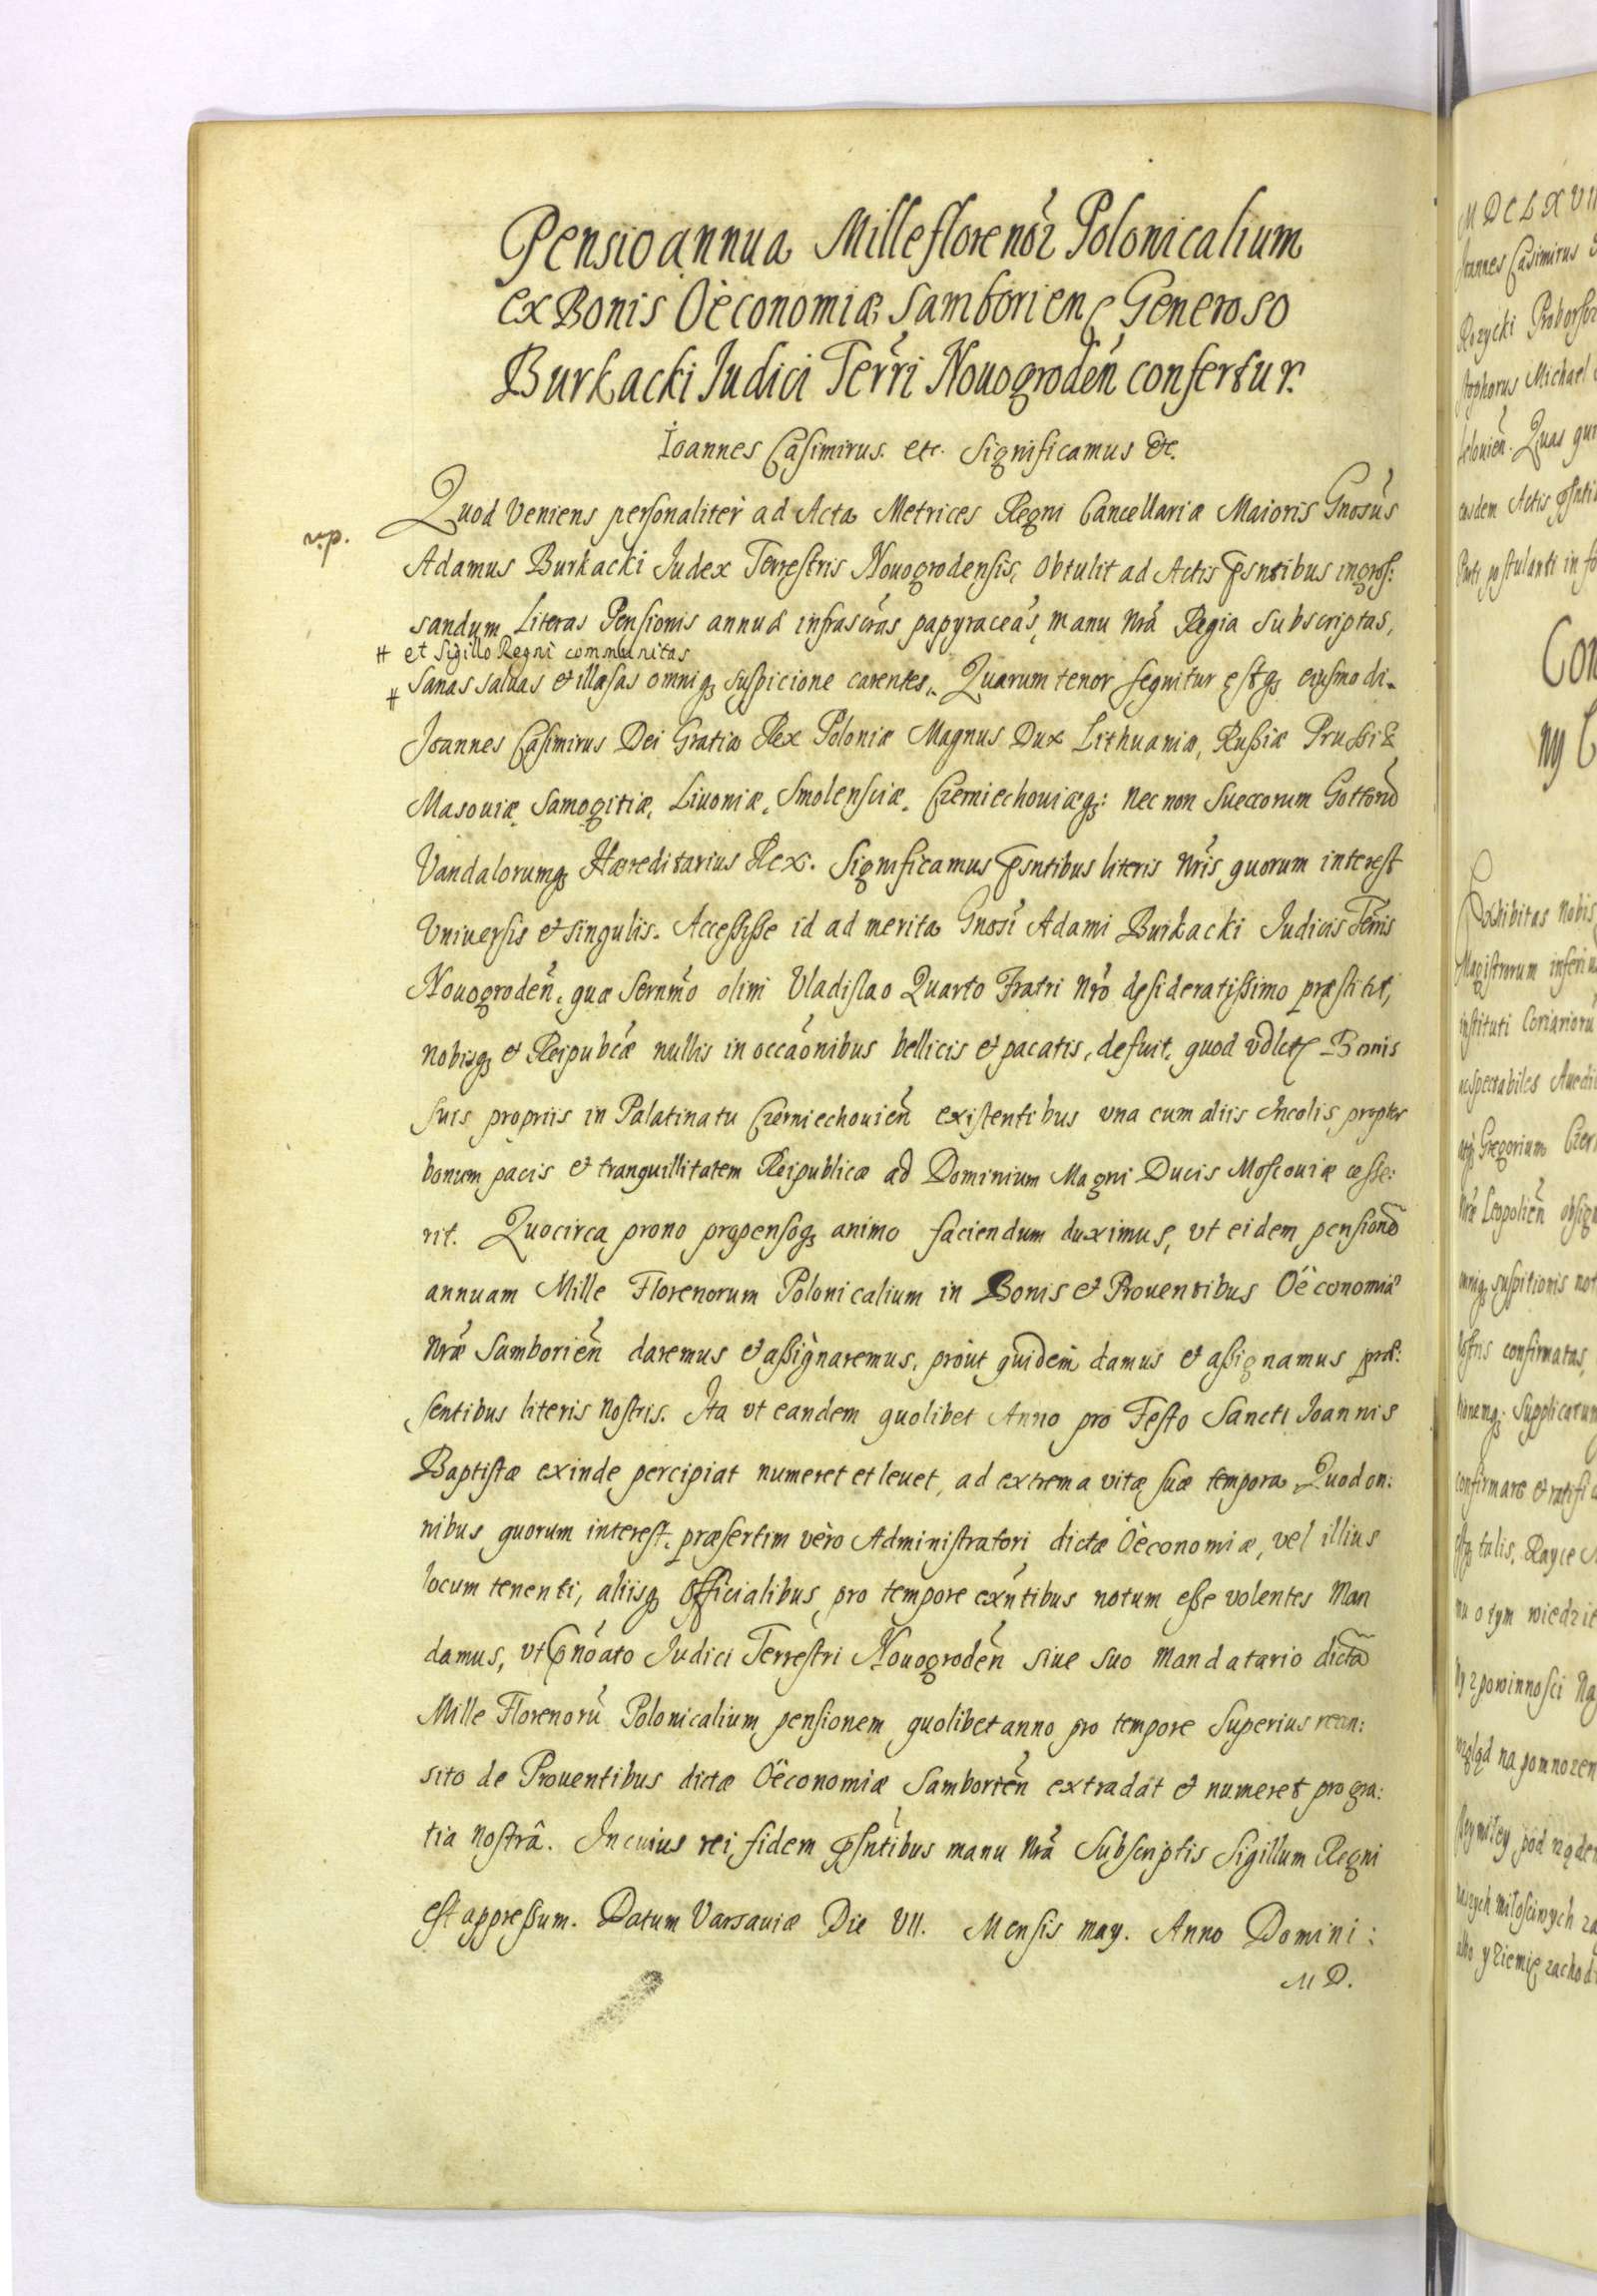 Pensio annua Mille florenor̃ Polonicalium
ex Bonis Oëconomiæ Samborien̄ Generoso
Burkacki Iudici Terr̃i Nouogrodeñ confertur.
Ioannes Casimirus. etc. Significamus etc.
Quod veniens personaliter ad Acta Metrices Regni Cancellariæ Maioris Gnosus
np.
Adamus Burkacki Iudex Terrestris Nouogrodensis, obtulit ad Actis p̃sntibus ingros:
sandum Literas Pensionis annuæ infrascr̃as papyraceas, manu nr̃a Regia subscriptas,
# et Sigillo Regni communitas
# sanas saluas et illæsas omniq; suspicione carentes. Quarum tenor sequitur estq; eiusmodi.
Ioannes Casimirus Dei Gratia Rex Poloniæ Magnus Dux Lithuaniæ, Rußiæ Prußiæ
Masouiæ, Samogitiæ, Liuoniæ, Smolensciæ, Czerniechouiæq;: nec non Sueccorum Gottorũ
Vandalorumq; Hæreditarius Rex. Significamus p̃sntibus literis nr̃is quorum interest
Vniuersis et singulis. Acceßisse id ad merita Gnosi Adami Burkacki Iudicis Terris
Nouogrodeñ, quæ Sernm̃o olim Vladislao Quarto Fratri nr̃o desideratißimo præstitit,
nobisq; et Reipubĉæ nullis in occãonibus bellicis et pacatis, defuit, quod vdlct Bonis
suis propriis in Palatinatu Czerniechouieñ existentibus vna cum aliis Incolis, propter
bonum pacis et tranquillitatem Reipublicæ ad Dominium Magni Ducis Moscouiæ ceße:
rit. Quocirca prono propensoq; animo faciendum duximus, vt eidem pensionẽ
annuam Mille Florenorum Polonicalium in Bonis et Prouentibus Oëconomiæ
nr̃æ Samborieñ daremus et aßignaremus, prout quidem damus et aßignamus præ:
sentibus literis nostris. Ita vt eandem quolibet Anno pro Festo Sancti Ioannis
Baptistæ exinde percipiat numeret et leuet, ad extrema vitæ suæ tempora. Quod om:
nibus quorum interest, præsertim vero Administratori dictæ Oëconomiæ, vel illius
locum tenenti, aliisq; Officialibus, pro tempore exñtibus notum eße volentes Man
damus, vt p̃nõato Iudici Terrestri Nouogrodeñ siue suo Mandatario dictã
Mille Florenorũ Polonicalium pensionem quolibet anno pro tempore superius recen:
sito de Prouentibus dictæ Oëconomiæ Samborieñ extradat et numeret pro gra:
tia nostrâ. In cuius rei fidem p̃sñtibus manu nr̃a Subscriptis Sigillum Regni
est appreßum. Datum Varsauiæ Die VII. Mensis may. Anno Domini:
M D.